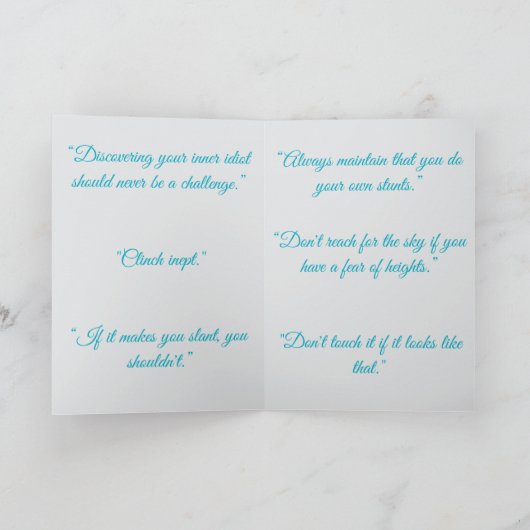 “Discovering your inner idiot
should never be a challenge.”
"Clinch inept."
“ If it makes you slant, you
shouldn't.”
“Always maintain that you do
your own stunts.”
“Don't reach for the sky if you
have a fear of heights.”
"Don't touch it if it looks like
that."